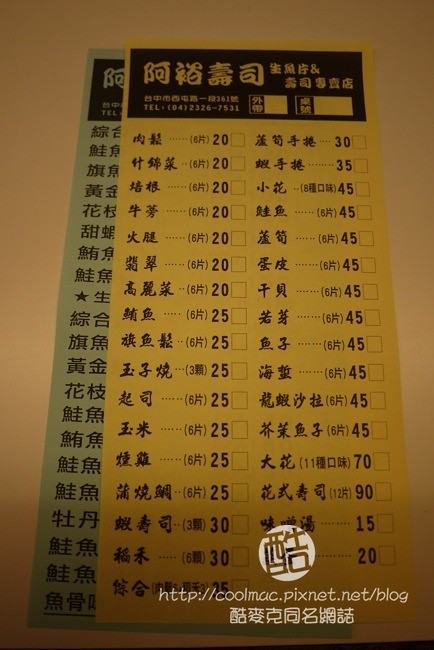 阿裕壽司 生魚片&
壽司專賣店
台中市西屯路一段361號
TEL:(04)2326-7531
外帶
桌號
肉鬆……(6片) 20
什錦菜…(6片) 20
培根……(6片) 20
牛蒡……(6片) 20
火腿……(6片) 20
翡翠……(6片) 20
高麗菜…(6片) 20
鮪魚……(6片) 25
旗魚鬆…(6片) 25
玉子燒…(3顆) 25
起司……(6片) 25
玉米……(6片) 25
燻雞……(6片) 25
蒲燒鯛…(6片) 25
蝦壽司…(3顆) 30
稻禾……(6顆) 30
綜合 25
蘆筍手捲… 30
蝦手捲…… 35
小花…(8種口味) 45
鮭魚……(6片) 45
蘆筍……(6片) 45
蛋皮……(6片) 45
干貝……(6片) 45
若芽……(6片) 45
魚子……(6片) 45
海蜇……(6片) 45
龍蝦沙拉(6片) 45
芥菜魚子(6片) 45
大花(11種口味) 70
花式壽司(12片) 90
味噌湯…… 15
20
阿
台中市
TEL:
綜合
鮭魚
旗魚
黃金
花枝
甜蝦
鮪魚
鮭魚
★生
綜合
旗魚
黃金
花枝
鮭魚
鮪魚
鮭魚
鮭魚
牡丹
鮭魚
鮭魚
魚骨味
酷
http://coolmac.pixnet.net/blog
酷麥克同名網誌